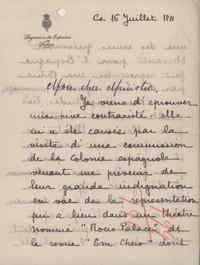 Legación de España
Ce 16 Juillet 1911
Mon cher Ministre,
Je viens d'éprouver
une vive contrariété elle
m'a été causée par la
visite d'une commission
de la Colonie espagnole
venant me presenter
leur grande indignation
en vue de la représentation
qui a lieu dans un théatre
nommé "Rocio Palace" de
la revue "Em Cheio" dont